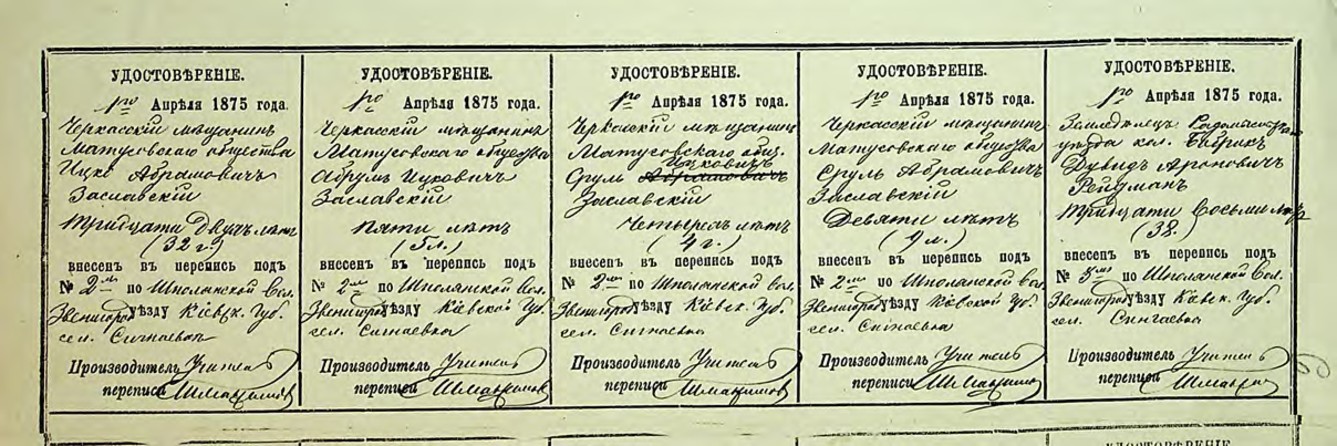 УДОСТОВѢРЕНІЕ.
1го Апрѣля 1875 года.
Черкасскій мѣщанинъ
Матусовскаго общества
Ицко Абрамовичъ
Заславскій
Тридцати двухъ лѣтъ
(32 г.)
внесенъ въ перепись подъ
№ 2мъ по Шполянской Вол.
Звенигород уѣзду Кіевск. Губ.
сел. Сигнаевка
Производитель Учитель
переписи
УДОСТОВѢРЕНІЕ.
1го Апрѣля 1875 года.
Черкасскій мѣщанинъ
Матусовскаго общества
Абрумъ Ицковичъ
Заславскій
пяти лѣтъ
(5 л.)
внесенъ въ перепись подъ
№ 2мъ по Шполянской Вол.
Звенигород уѣзду Кіевской Губ.
сел. Сигнаевка
Производитель Учитель
переписи
УДОСТОВѢРЕНІЕ.
1го Апрѣля 1875 года.
Черкасскій мѣщанинъ
Матусовскаго общ.
Ицковичъ
Сруль Абрамовичъ
Заславскій
Четырехъ лѣтъ
(4 г.)
внесенъ въ перепись подъ
№ 2мъ по Шполянской Вол.
Звенигород уѣзду Кіевск. Губ.
сел. Сигнаевка
Производитель Учитель
переписи
УДОСТОВѢРЕНІЕ.
1го Апрѣля 1875 года.
Черкасскій мѣщанинъ
Матусовскаго общества
Сруль Абрамовичъ
Заславскій
Девяти лѣтъ
(9 л.)
внесенъ въ перепись подъ
№ 2мъ по Шполянской Вол.
Звенигород уѣзду Кіевской Губ.
сел. Сигнаевка
Производитель Учитель
переписи
УДОСТОВѢРЕНІЕ.
1го Апрѣля 1875 года.
Земледѣлецъ
уѣзда кол.
Дувидъ Ароновичъ
Рейдманъ
Тридцати Восьми лѣтъ
(38.)
внесенъ въ перепись подъ
№ 3мъ по Шполянской Вол.
Звенигород уѣзду Кіевск. Губ.
сел. Сигнаевка
Производитель Учитель
переписи